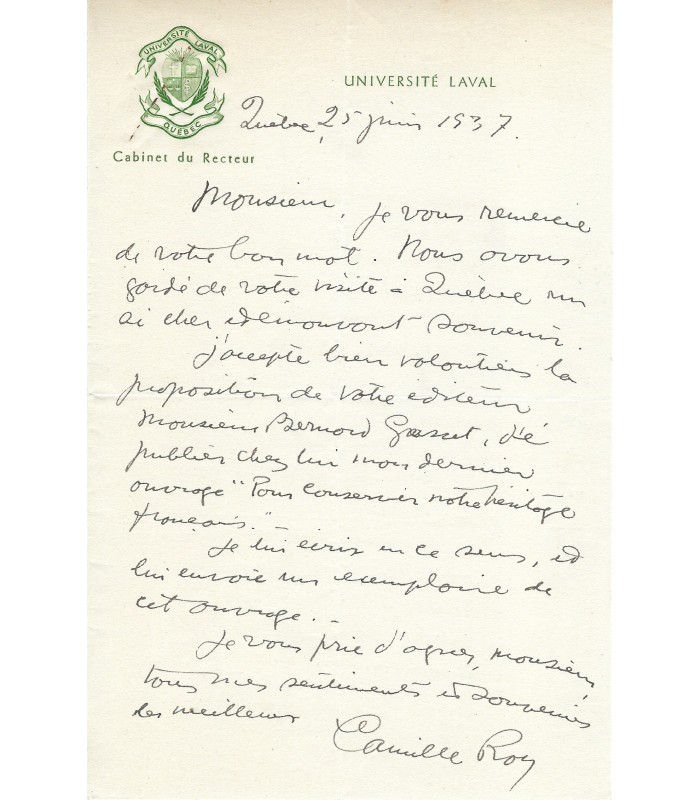 UNIVERSITÉ LAVAL
QUÉBEC
UNIVERSITÉ LAVAL
Québec, 25 juin 1937.
Cabinet du Recteur
Monsieur, je vous remercie
de votre bon mot. Nous avons
gardé de votre visite à Québec un
si cher et émouvant souvenir.
J'accepte bien volontiers la
proposition de votre éditeur
Monsieur Bernard Grasset, d'é
publier chez lui mon dernier
ouvrage "Pour conserver notre héritage
français." -
Je lui écris en ce sens, et
lui envoie un exemplaire de
cet ouvrage. -
Je vous prie d'agréer, monsieur,
tous mes sentiments et souvenirs
les meilleurs
Camille Roy